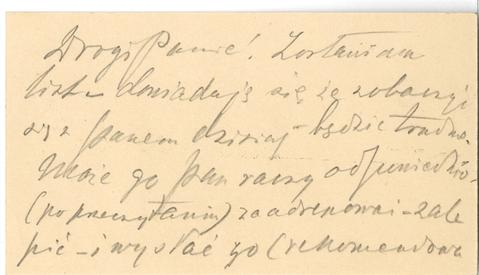 Drogi Panie! Zostawiam
list – dowiaduję się że zobaczyć
się z Panem dzisiaj – będzie trudno.
Może go Pan raczy odpowiednio
(po przeczytaniu) zaadresować – zale
pić – i wysłać go (rekomendowa